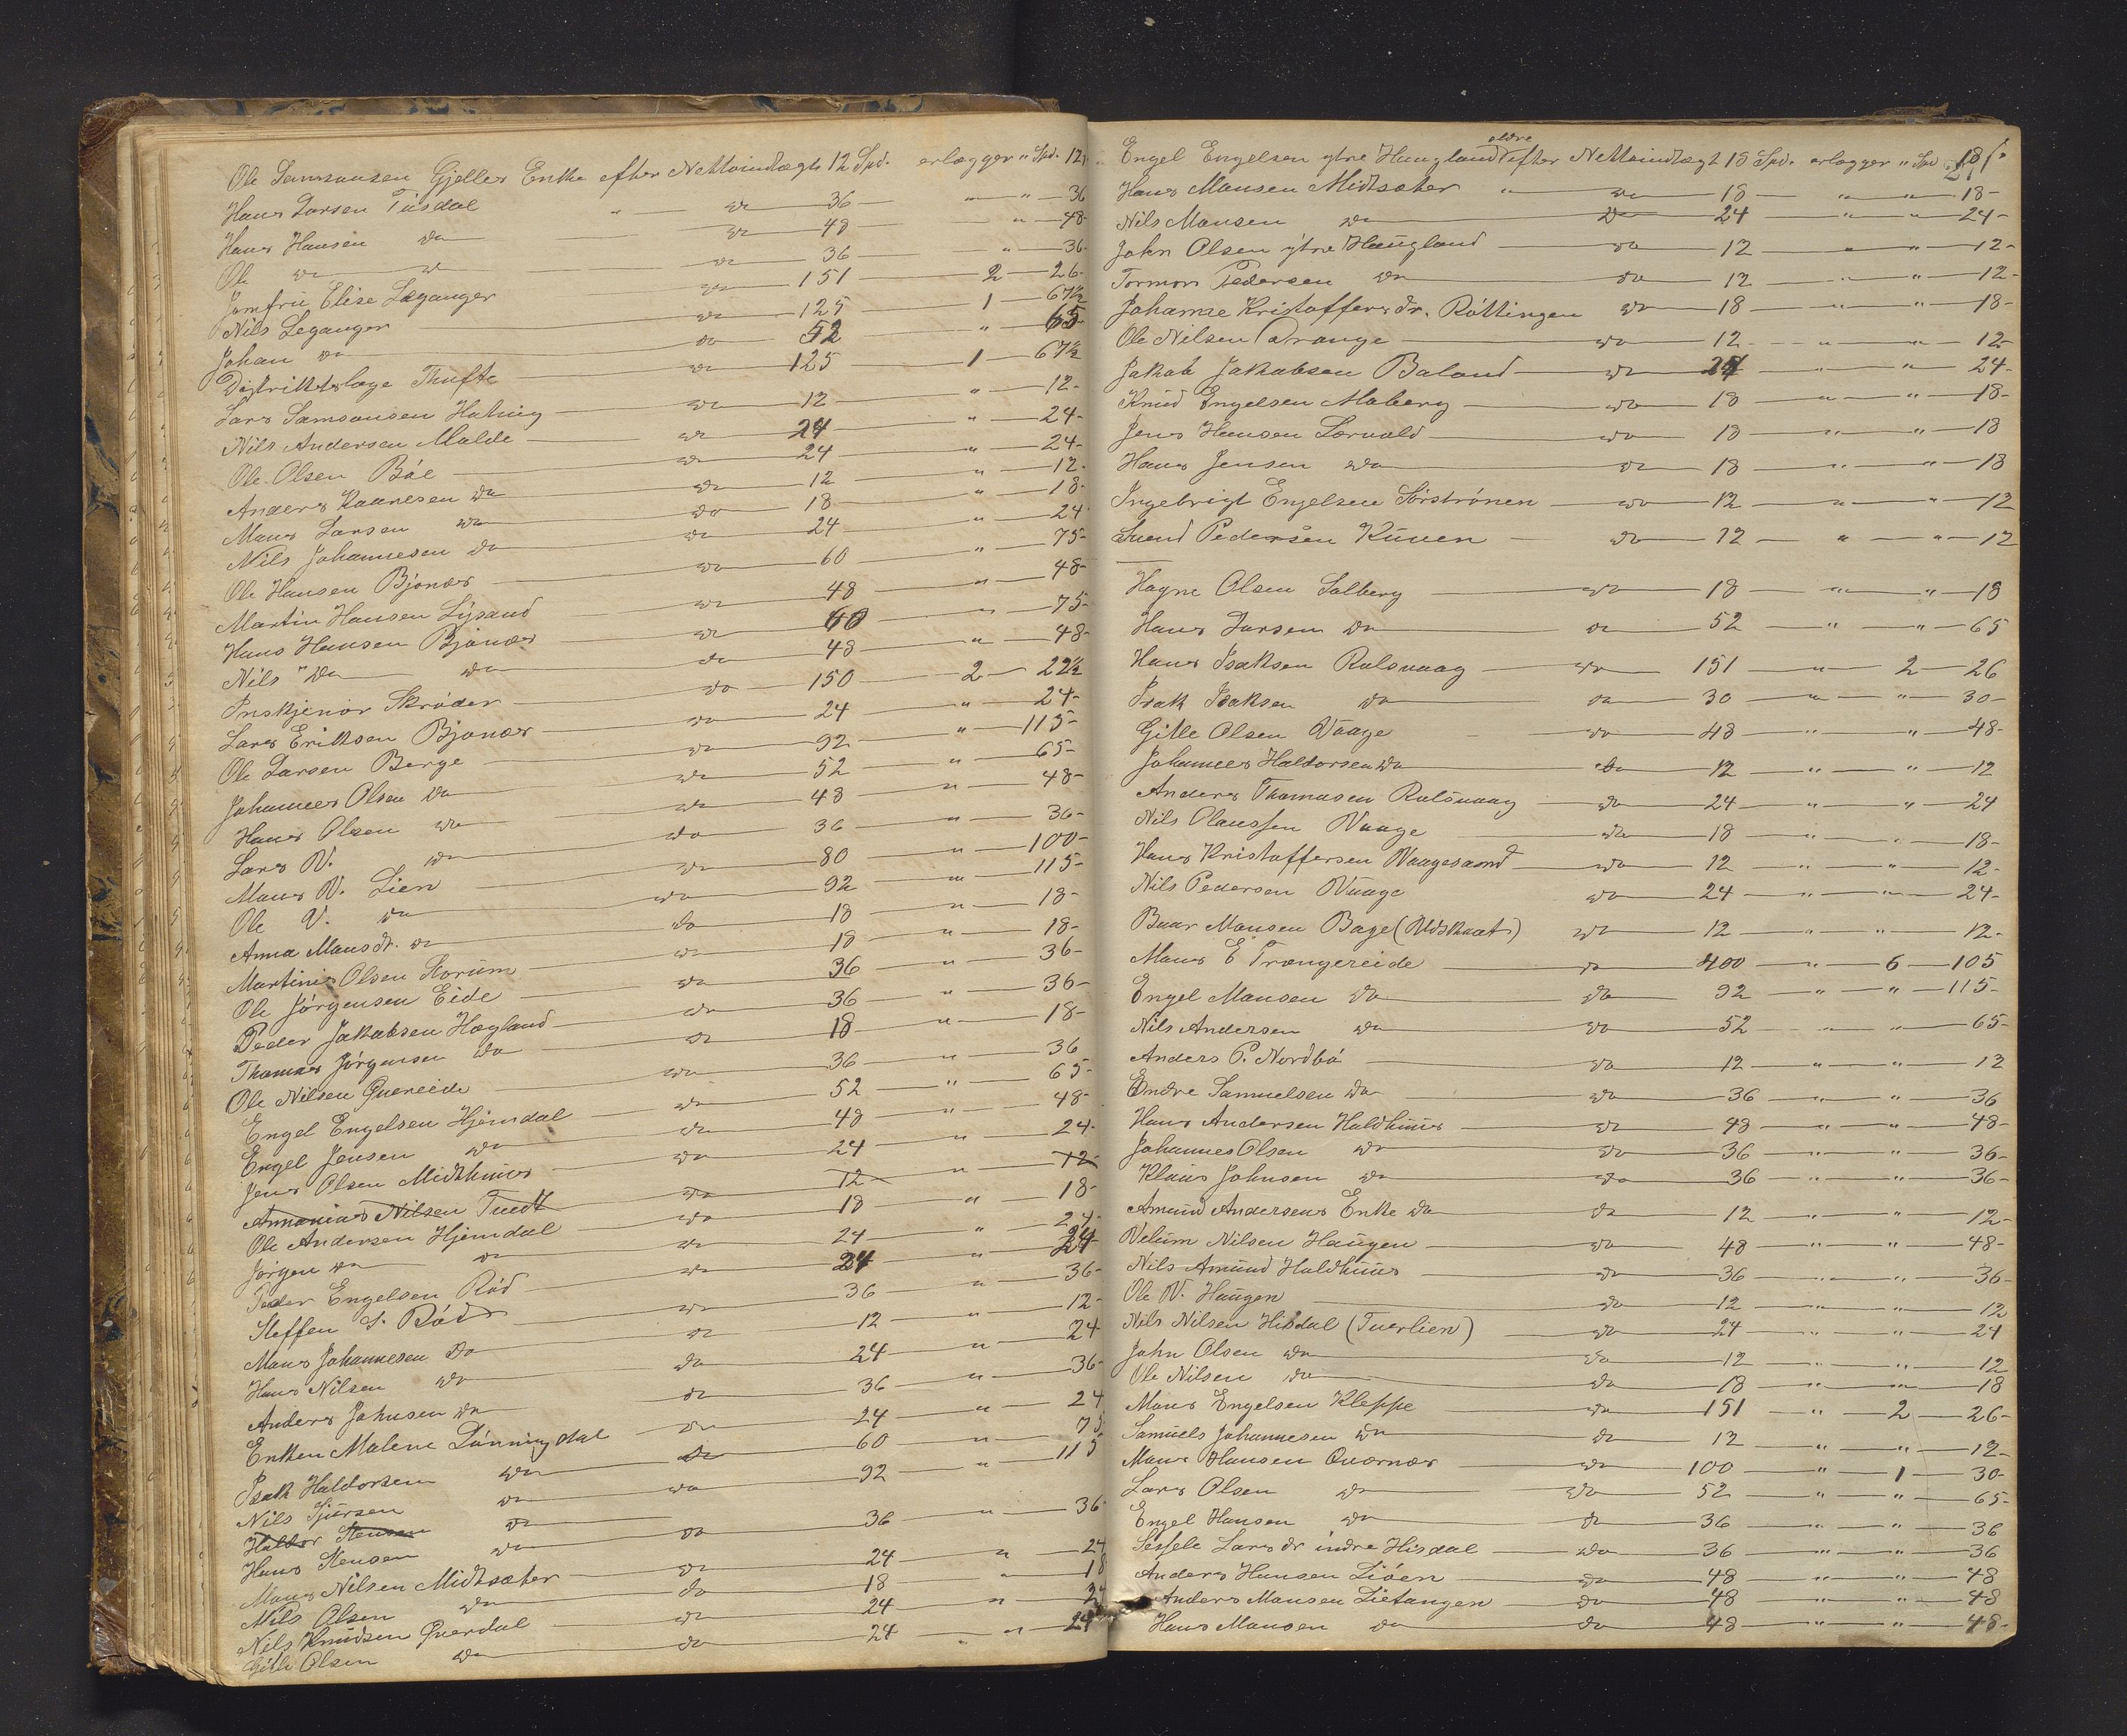 Ole Samsonsen Gjelles Enke efter Nettoindtægt 12 Spd. erlægger " Spd. 12
Hans Larsen Tüsdal " do 36 " " 36
Hans Hansen do do 48 " 48-
Ole do do do 36 " 36-
Jomfrü Elise Leganger do 151 2 26-
Nils Leganger do 125 1 67½
Johan do do 52 " 65-
Distriktslæge Thüfte do 125 1 67½
Lars Samsonsen Hatvig do 12 " 12-
Nils Andersen Malde do 24 " 24-
Ole Olsen Böe do 24 " 24-
Anders Kaaresen do do 12 " 12-
Mans Larsen do do 18 " 18-
Nils Johannesen do do 24 " 24
Ole Hansen Bjonæs do 60 " 75-
Martin Hansen Lysand do 48 " 48-
Hans Hansen Bjonæs do 60 " 75-
Nils " do do do 48 " 48-
Inskjenör Skröder do 150 2 22½
Lars Eriksen Bjonæs do 24 " 24-
Ole Larsen Berge do 92 " 115-
Johannes Olsen do do 52 " 65-
Hans Olsen do do 48 " 48-
Lars N. do do 36 " 36-
Mans N. Lien do 80 " 100-
Ole N. do do 92 " 115-
Anna Mansdr. do do 18 " 18-
Martinis Olsen Storüm do 18 " 18-
Ole Jörgensen Eide do 36 " 36-
Peder Jakobsen Hægland do 36 " 36-
Thomas Jörgensen do do 18 " 18-
Ole Nilsen Qvereide do 36 " 36
Engel Engelsen Hjemdal do 52 " 65-
Engel Jensen do do 48 " 48-
Jens Olsen Midthüüs do 24 " 24-
Annanias Nilsen Tuedt do 12 " 12-
Ole Andersen Hjemdal do 18 " 18-
Jörgen do do do 24 " 24-
Peder Engelsen Röd do 24 " 24-
Steffen S. Röd do 36 " 36-
Mans Johannesen do do 12 " 12-
Hans Nilsen do do 24 " 24
Anders Johnsen do do 36 " 36-
Enken Malene Lönningdal do 24 " 24
Isak Haldorsen do do 60 " 75
Nils Sjürsen do do 92 " 115
Haldor Stensen do
Hans Stensen do do 36 " 36
Mans Nilsen Midtsæter do 24 " 24
Nils Olsen do do 18 " 18
Nils Knüdsen Qverdal do 24 " 24
Gitle Olsen do do 24 " " 24
181.
Engel Engelsen ytre Haugland ældre efter Nettoindtægt 18 Spd. erlægger " Spd 18
Hans Mansen Midtsæter " do 18 " " 18-
Nils Mansen do do 24 " " 24-
John Olsen ytre Haügland do 12 " " 12-
Tormon Pedersen do do 12 " " 12-
Johanne Kristoffersdr. Röttingen do 18 " " 18-
Ole Nilsen Drange do 12 " " 12-
Jakob Jakobsen Baland do 24 " " 24-
Knüd Engelsen Moberg do 18 " " 18-
Jens Hansen Lervold do 18 " " 18
Hans Jensen do do 18 " " 18
Ingebrigt Engelsen Sörströnen do 12 " " 12
Svend Pedersen Küven do 12 " " 12
Hagne Olsen Solberg do 18 " " 18
Hans Larsen do do 52 " " 65
Hans Isaksen Rolsvaag do 151 " 2 26
Isak Isaksen do do 30 " " 30-
Gitle Olsen Vaage do 48 " " 48-
Johannes Haldorsen do do 12 " " 12
Anders Thomasen Rolsvaag do 24 " " 24
Nils Olaussen Vaage do 18 " " 18-
Hans Kristoffersen Vaagesand do 12 " " 12-
Nils Pedersen Vaage do 24 " " 24-
Baar Mansen Bage (Udskaat) do 12 " " 12-
Mans E Trængereide do 400 " 6 105
Engel Mansen do do 92 " " 115-
Nils Andersen do do 52 " " 65-
Anders P. Nordbö do 12 " " 12
Endre Samuelsen do do 36 " " 36
Hans Andersen Haldhüüs do 48 " " 48-
Johannes Olsen do do 36 " " 36-
Klaüs Johnsen do do 36 " " 36-
Amünd Andersens Enke do do 12 " " 12-
Velüm Nilsen Haügen do 48 " " 48-
Nils Amünd Haldhüüs do 36 " " 36-
Ole N. Haügen do 12 " " 12
Nils Nilsen Hisdal (Tuerlien) do 24 " " 24
John Olsen do do 12 " " 12
Ole Nilsen do do 18 " " 18
Mans Engelsen Kleppe do 151 " 2 26-
Samüels Johannesen do do 12 " " 12-
Mans Hansen Qværnæs do 100 " 1 30-
Lars Olsen do do 52 " " 65-
Engel Hansen do do 36 " " 36
Sessele Larsdr indre Hisdal do 36 " " 36
Anders Hansen Liöen do 48 " " 48
Anders Mansen Lietangen do 48 " " 48
Hans Mansen do do 48 " " 48-